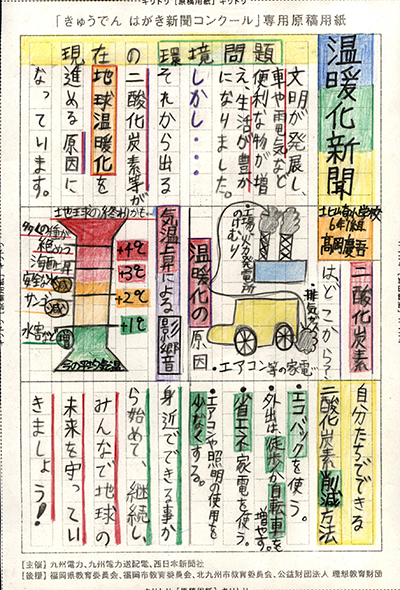 キリトリ【原稿用紙】キリトリ
「きゅうでん はがき新聞コンクール」専用原稿用紙
温暖化新聞
北山崎小学校
6年1組
高岡慶吾
現在の環境問題
文明が発展し、
車や電気など
便利な物が増
え、生活が豊か
になりました。
しかし・・・
それから出る
二酸化炭素等が
地球温暖化を
進める原因に
なっています。
二酸化炭素
は、どこから？
・工場や火力発電所
のけむり
・排気ガス
・エアコン等の家電
温暖化の
原因
気温上昇による影響
地球の終わりかも…
+4℃
+3℃
+2℃
+1℃
多くの種が
絶めつ
海面上昇
安全な水
減
サンゴ
減
水害など
増
今の平均気温
自分たちでできる
二酸化炭素削減方法
・エコバックを使う。
・外出は、徒歩か自転車を
増やす。
・省エネ家電を使う。
・エアコンや照明の使用を
少なくする。
身近でできる事か
ら始めて、継続し、
みんなで地球の
未来を守ってい
きましょう！
［主催］九州電力、九州電力送配電、西日本新聞社
［後援］福岡県教育委員会、福岡市教育委員会、北九州市教育委員会、公益財団法人 理想教育財団
キリトリ【原稿用紙】キリトリ